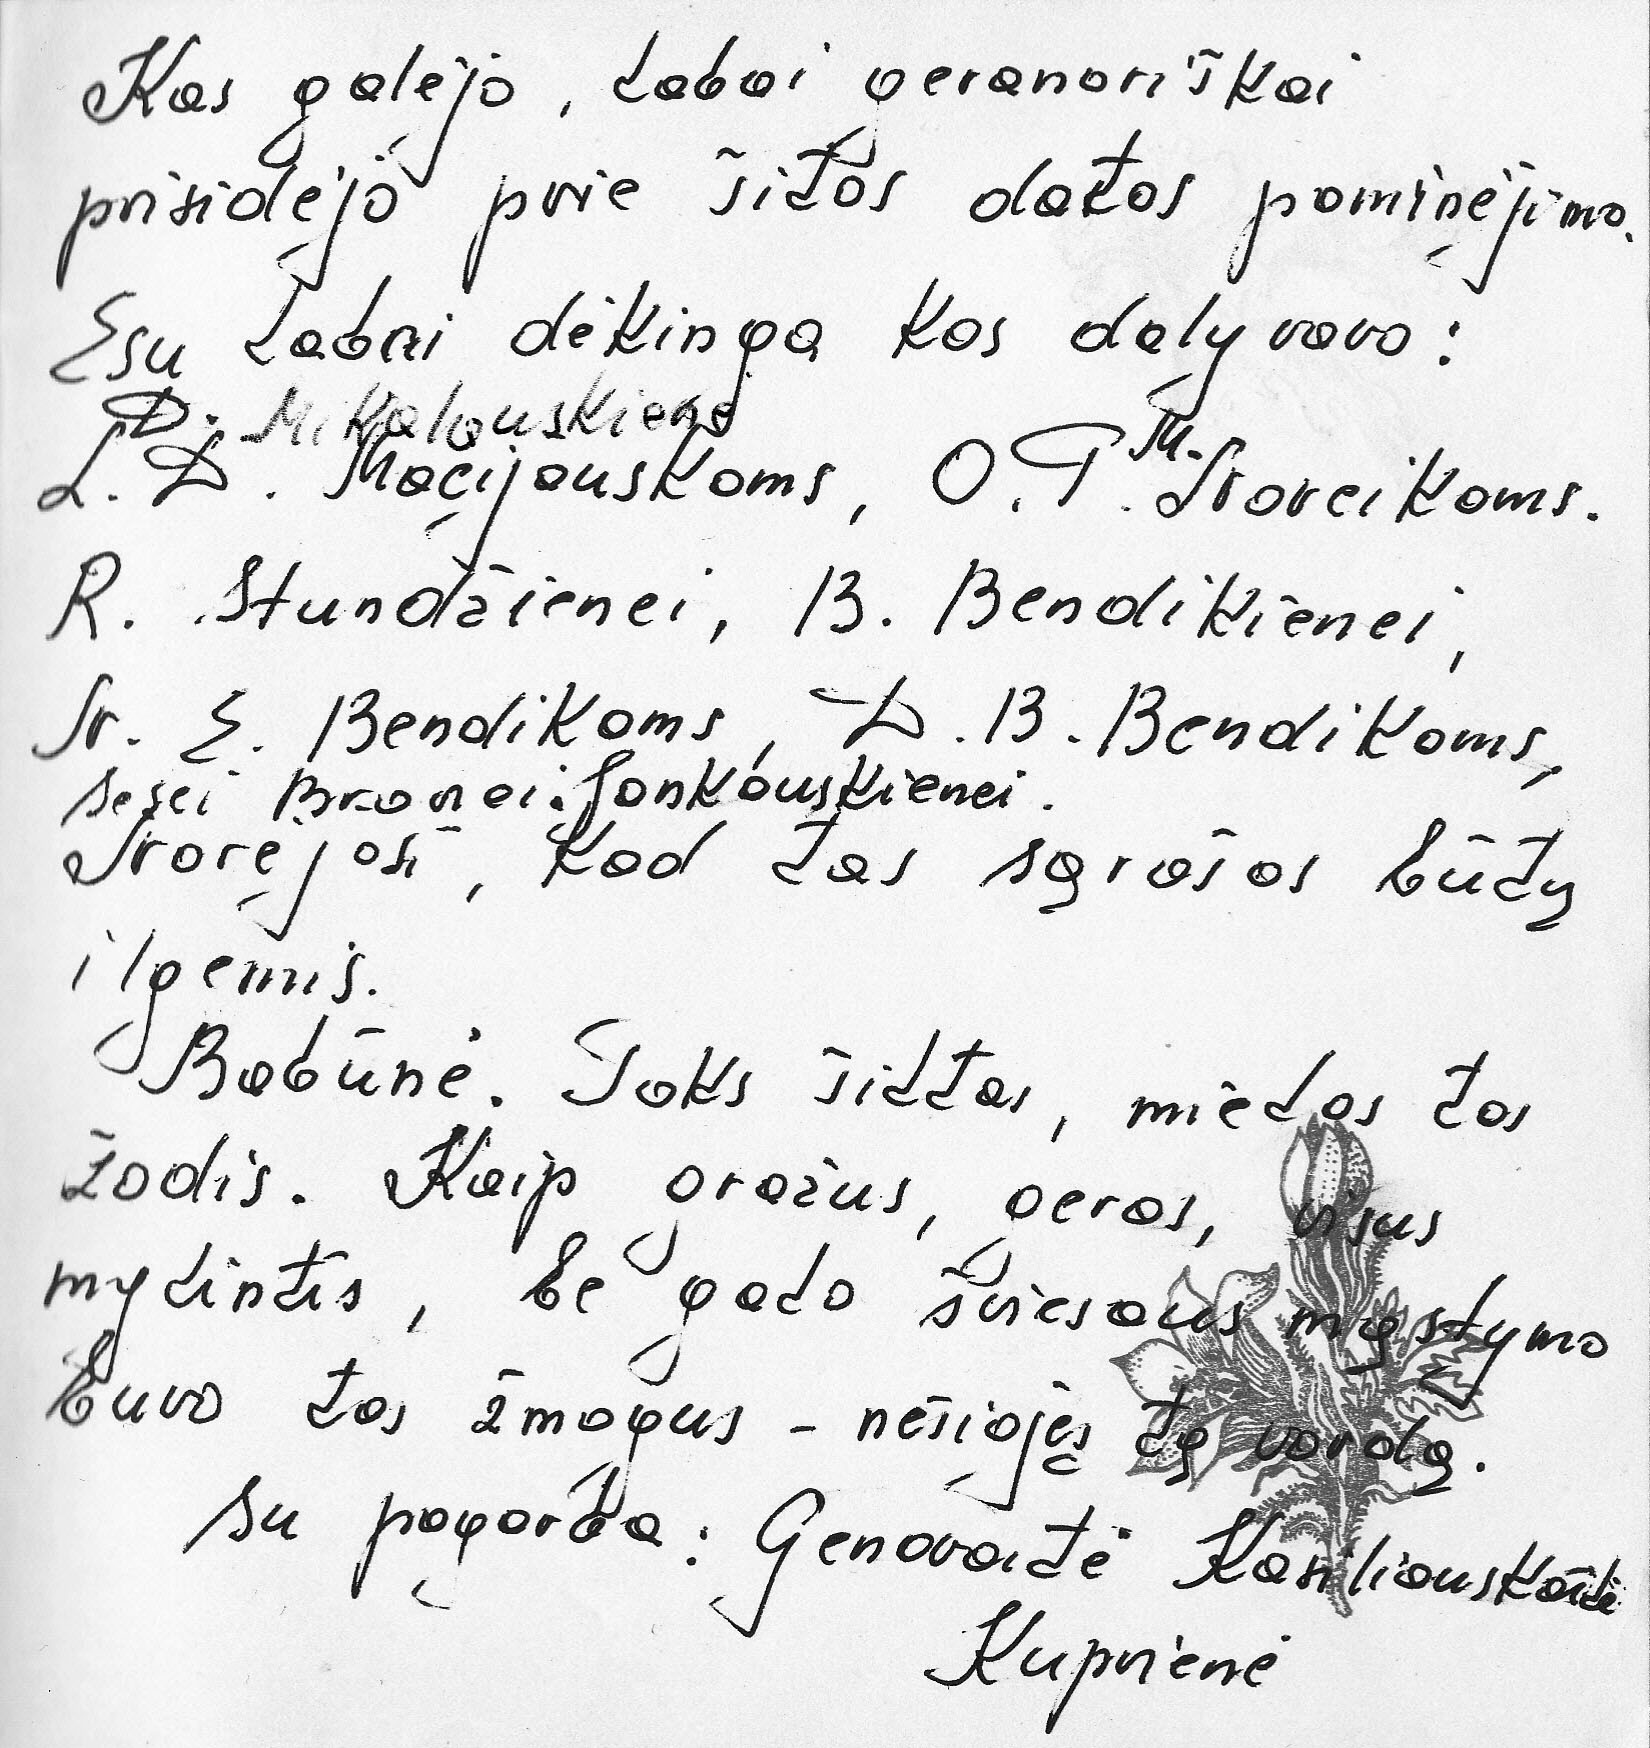 Kas galėjo, labai geranoriškai
prisidėjo prie šitos datos pominėjimo.
Esu labai dėkinga kas dalyvavo:
D. Mikalauskienė
L. D. Mačijauskams, O. P. M. Noreikoms.
R. Stundžienei, B. Bendikienei,
N. E. Bendikams, D. B. Bendikams,
sesei Bronei Jankauskienei.
Norėjosi, kad tas sąrašas būtų
ilgesnis.
Babūnė. Toks šiltas, mielas tas
žodis. Kaip gražus, geras, visus
mylintis, be galo šviesaus mąstymo
buvo tas žmogus - nešiojęs tą vardą.
su pagarba: Genovaitė Kasiliauskaitė
Kuprienė